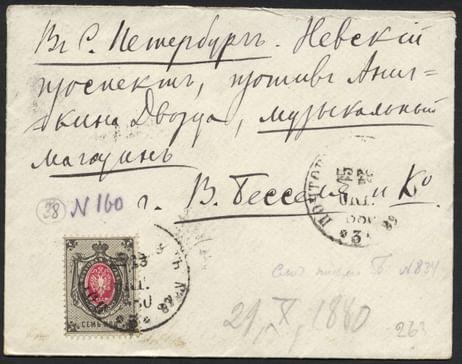 Въ С. Петербургъ. Невскій
проспектъ, противъ Анич-
кина Дворца, музыкальный
магазинъ
38 N 160 г. В. Бессель и Ко
ПОЧТОВ
3
СЕМЬ КОП
N 834
29, X, 1880
263